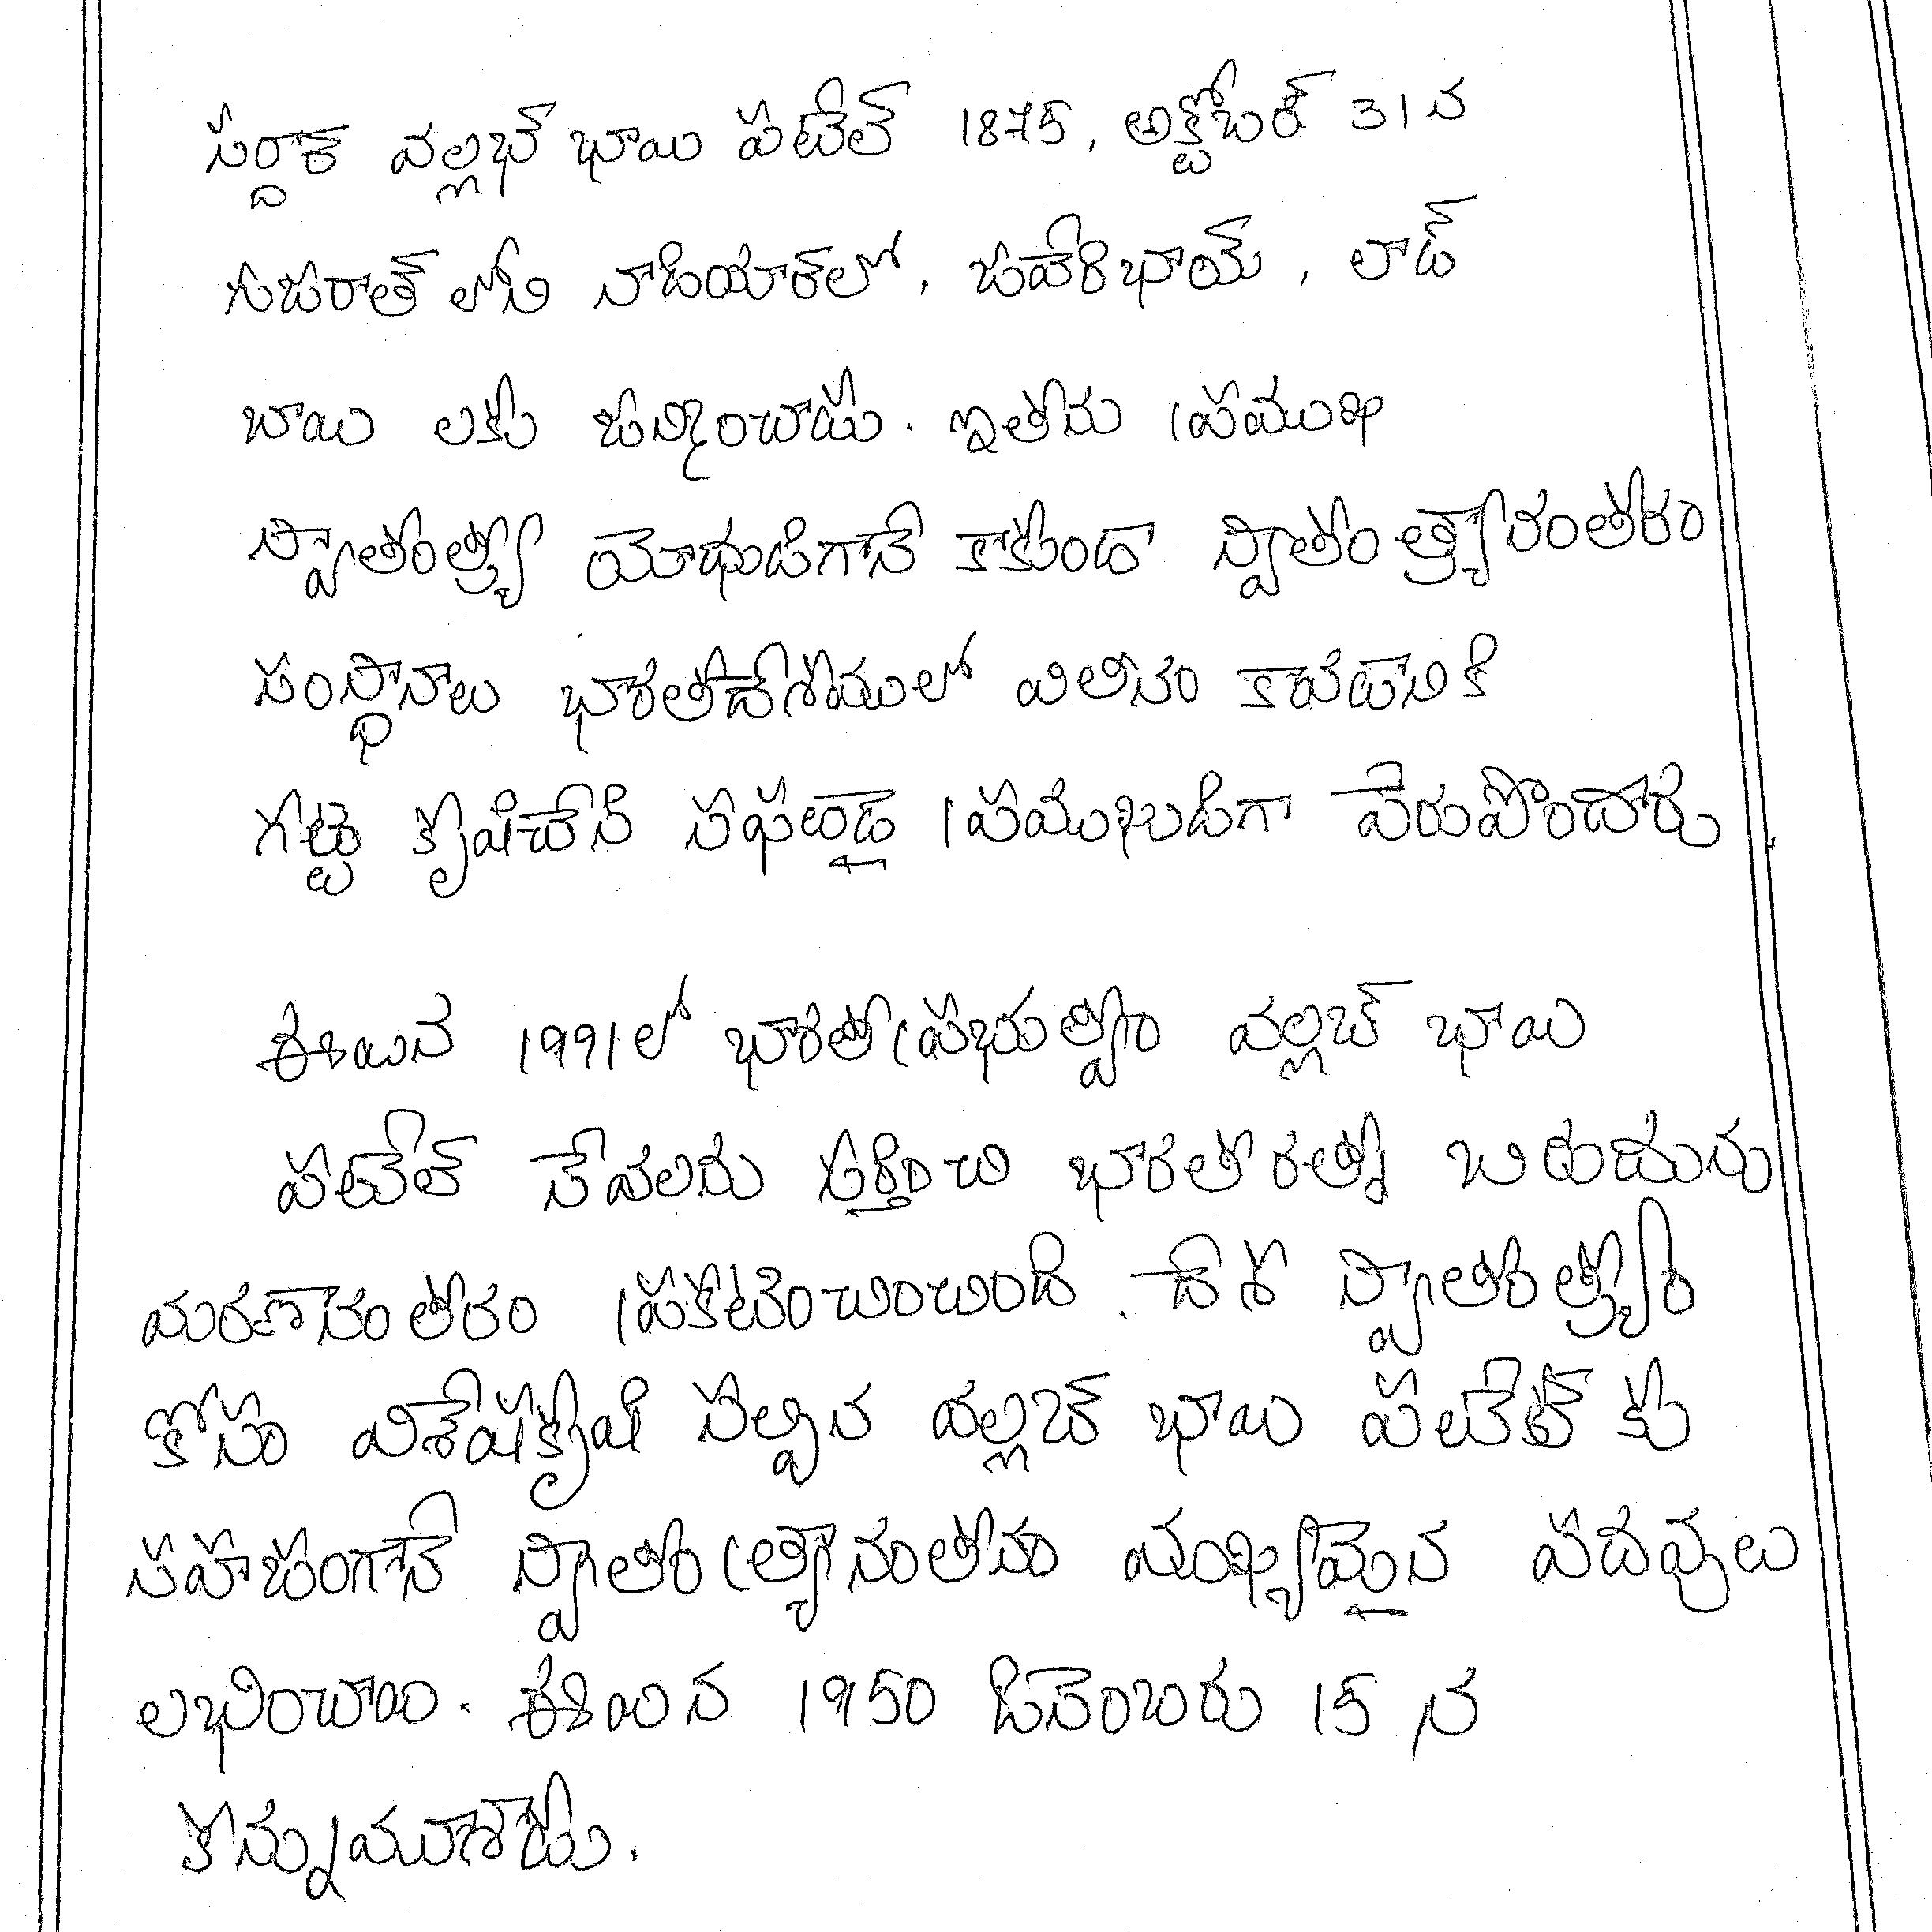 సర్దార్ వల్లభ్ భాయి పటేల్ 1875, అక్టోబర్ 31న
గుజరాత్ లోని నాదియార్‌లో, జవేరిభాయ్, లాడ్
బాయి లకు జన్మించాడు. ఇతను ప్రముఖ
స్వాతంత్ర్య యోధుడిగానే కాకుండా స్వాతంత్ర్యానంతరం
సంస్థానాలు భారతదేశములో విలీనం కావడానికి
గట్టి కృషిచేసి సఫలుడై ప్రముఖుడిగా పేరుపొందారు
ఈయన 1991లో భారతప్రభుత్వం వల్లబ్ భాయి
పటేల్ సేవలను గుర్తించి భారతరత్న బిరుదును
మరణానంతరం ప్రకటించించింది. దేశ స్వాతంత్ర్యం
కోసం విశేషకృషి సల్పిన వల్లబ్ భాయి పటేల్ కు
సహజంగానే స్వాతంత్ర్యానంతనం ముఖ్యమైన పదవులు
లభించాయి. ఈయన 1950 డిసెంబరు 15 న
కన్నుమూశాడు.